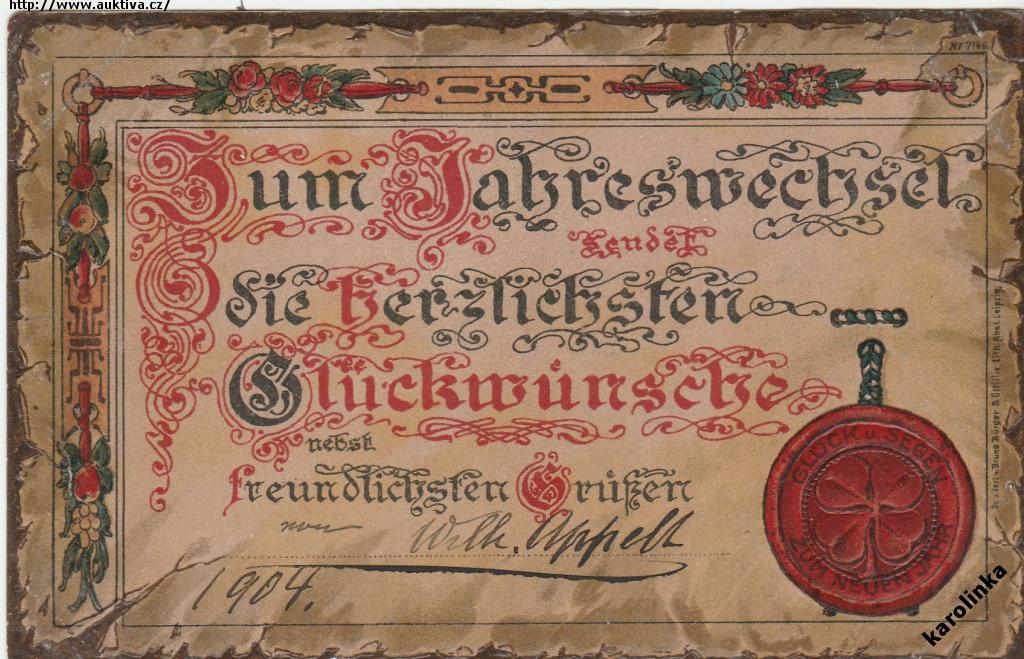 http://www.auktiva.cz/
Nº 7146
Zum Jahreswechsel
sendet
die herzlichsten
Glückwünsche
nebst
freundlichsten Grüßen
von Wilh. Appelt
1904.
GLÜCK u. SEGEN
ZUM NEUEN JAHR
Bruno Bürger & Ottillie Lith. Anst. Leipzig.
karolinka